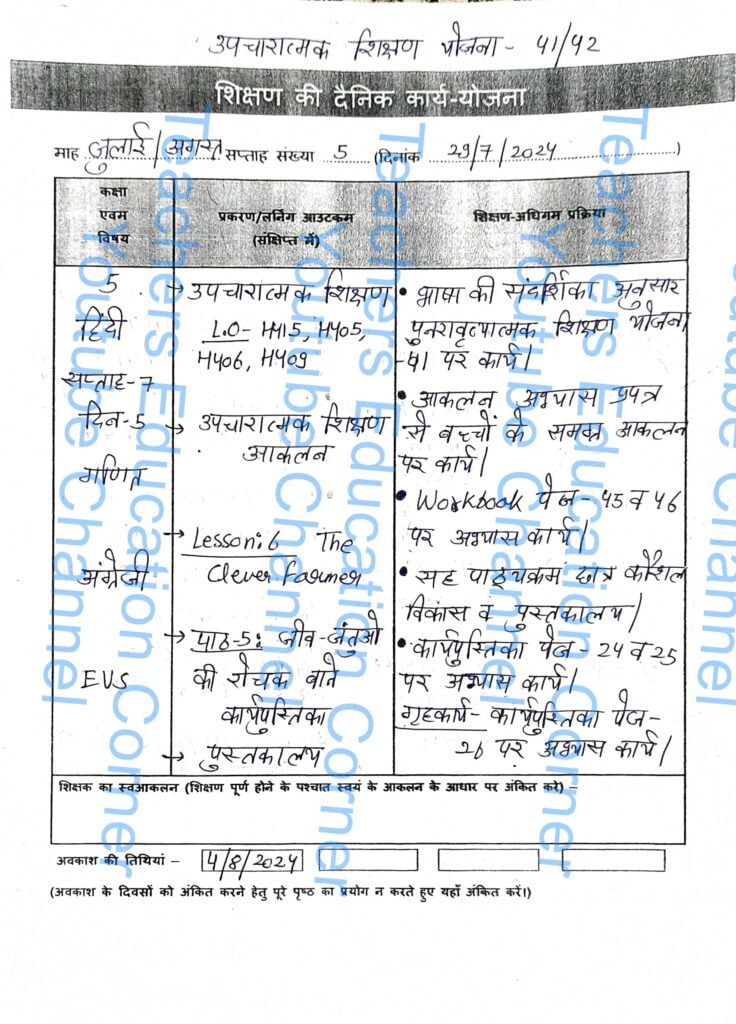 उपचारात्मक शिक्षण योजना- 41/42
शिक्षण की दैनिक कार्य-योजना
माह जुलाई/अगस्त सप्ताह संख्या 5 (दिनांक 29/7/2024)
कक्षा एवम विषय
प्रकरण/लर्निंग आउटकम (संक्षिप्त में)
शिक्षण-अधिगम प्रक्रिया
5
हिंदी
सप्ताह-7
दिन-5
गणित
अंग्रेजी
EVS
→ उपचारात्मक शिक्षण
L.O- H415, H405,
H406, H409
→ उपचारात्मक शिक्षण
आकलन
→ Lesson:6 The
Clever Farmer
→ पाठ-5: जीव-जंतुओ
की रोचक बाते
कार्यपुस्तिका
→ पुस्तकालय
• भाषा की संदर्शिका अनुसार
पुनरावृत्यात्मक शिक्षण योजना
-41 पर कार्य।
• आकलन अभ्यास प्रपत्र
से बच्चों के समक्ष आकलन
पर कार्य।
• Workbook पेज-45 व 46
पर अभ्यास कार्य।
• सह पाठ्यक्रम छात्र कौशल
विकास व पुस्तकालय।
• कार्यपुस्तिका पेज-24 व 25
पर अभ्यास कार्य।
गृहकार्य- कार्यपुस्तिका पेज-
26 पर अभ्यास कार्य।
शिक्षक का स्वआकलन (शिक्षण पूर्ण होने के पश्चात स्वयं के आकलन के आधार पर अंकित करे) –
अवकाश की तिथियां – 4/8/2024
(अवकाश के दिवसों को अंकित करने हेतु पूरे पृष्ठ का प्रयोग न करते हुए यहाँ अंकित करें।)
Teachers Education Corner
Youtube Channel
Teachers Education Corner
Youtube Channel
Teachers Education Corner
Youtube Channel